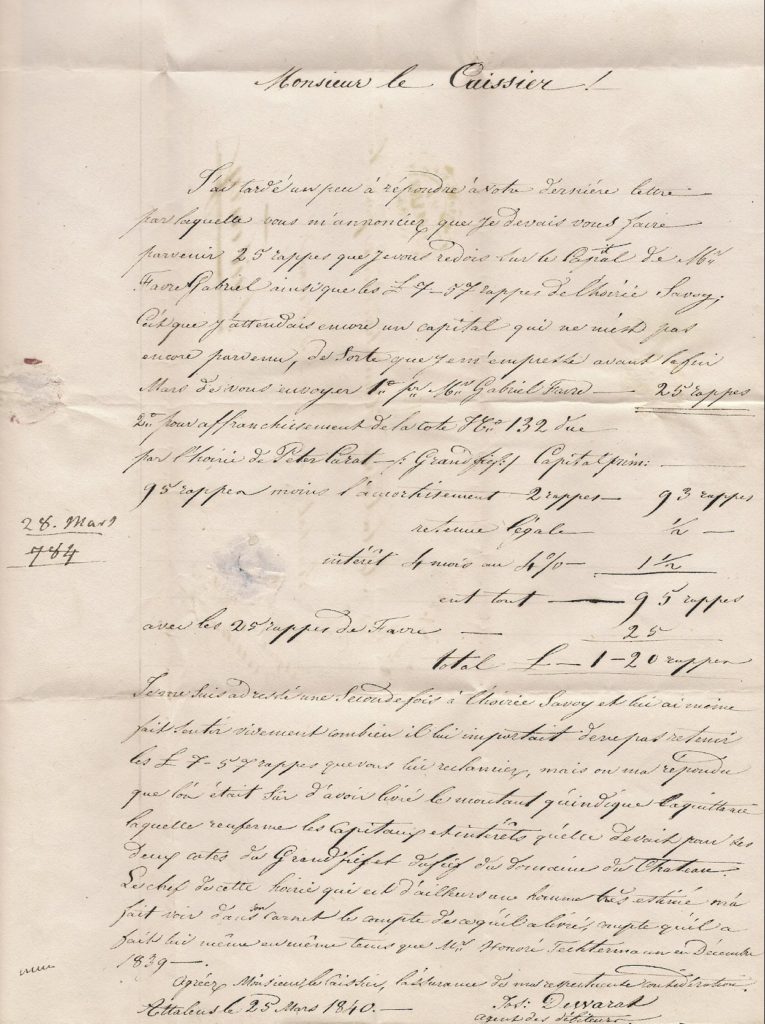 Monsieur le Caissier !
J'ai tardé un peu à répondre à votre dernière lettre
par laquelle vous m'annonciez que je devais vous faire
parvenir 25 rappes que je vous redois sur le de Mr
Favre Gabriel ainsi que les £ 7-57 rappes de l'hoirie Savoy,
C'est que j'attendais encore un capital qui ne m'est pas
encore parvenu, de sorte que je m'empresse avant la fin
Mars de vous envoyer 1o pr Mr Gabriel Favre — 25 rappes
2o pour affranchissement de la cote No 132 due
par l'hoirie de Peter — Grand fief Capital prim:
95 rappen moins l'amortissement 2 rappes — 93 rappes
retenue légale ½ —
28. Mars
784
intérêt 4 mois au 4% — 1 ½
en tout — 95 rappes
avec les 25 rappes de Favre — 25
total £ — 1-20 rappen
Je me suis adressé une seconde fois à l'hoirie Savoy et lui ai même
fait sentir vivement combien il lui importait de ne pas retenir
les £ 7-57 rappes que vous lui reclamiez, mais on m'a répondu
que l'on était sûr d'avoir livré le montant qu'indique la quittance
laquelle renferme les capitaux et intérêts qu'elle devait pour les
deux cotes du Grand fief et du fief du domaine du Chateau.
Le chef de cette hoirie qui est d'ailleurs une homme très estimé m'a
fait voir dans son carnet le compte de ce qu'il a livré, compte qu'il a
fait lui même en même tems que Mr Honoré Techtermann en Décembre
1839 —.
Agréez Monsieur le Caissier, l'assurance de ma respectueuse considération.
Attalens le 25 Mars 1840. — Jos: Dewarat
agent des débiteurs